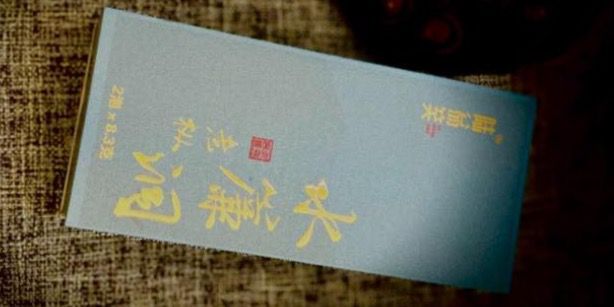 水簾洞
老枞
2泡 x 8.3克